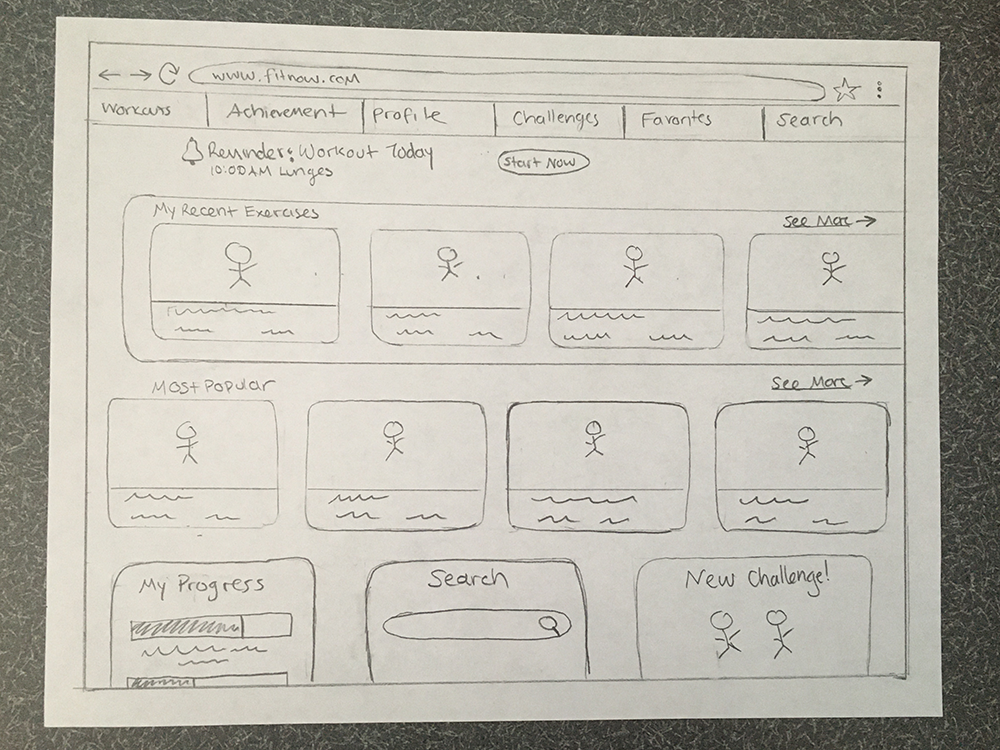 www.fitnow.com
Workouts Achievement Profile Challenges Favorites Search
Reminder: Workout Today Start Now
10:00AM Lunges
My Recent Exercises See More →
Most Popular See More →
My Progress Search New Challenge!